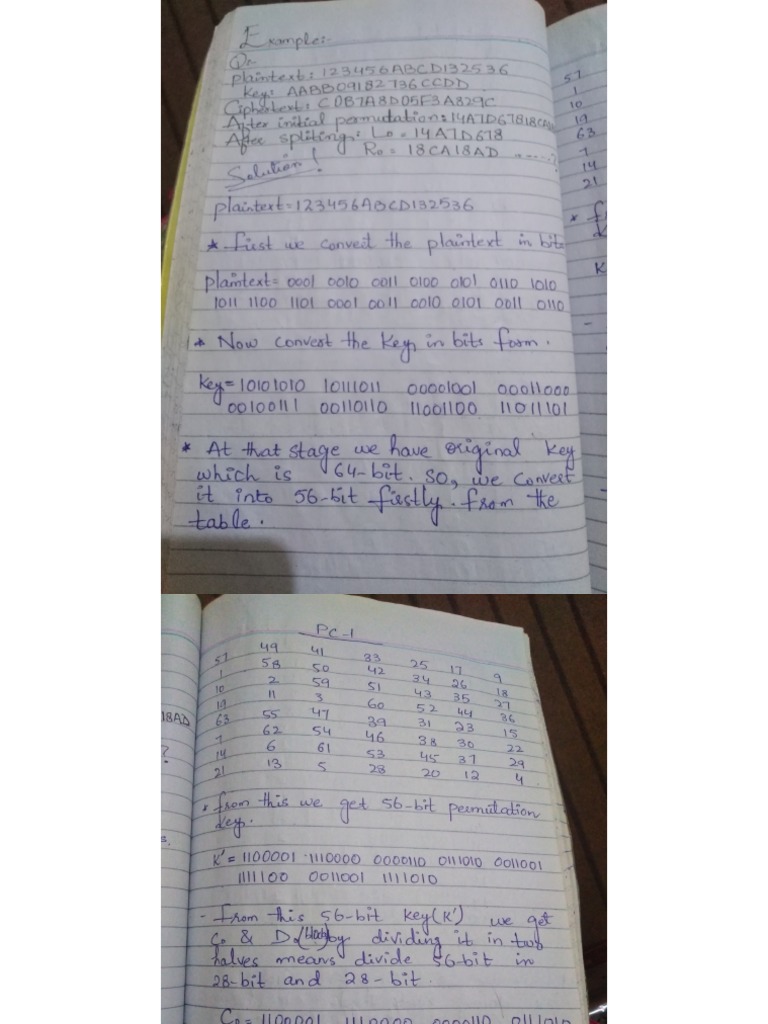 Example:-
Q:-
Plaintext: 123456ABCD132536
Key: AABB09182736CCDD
Ciphertext: C0B7A8D05F3A829C
After initial permutation: 14A7D67818CA
After spliting: L0 = 14A7D678
R0 = 18CA18AD ......?
Solution!
Plaintext = 123456ABCD132536
* First we convert the plaintext in bits
Plaintext = 0001 0010 0011 0100 0101 0110 1010
1011 1100 1101 0001 0011 0010 0101 0011 0110
* Now convert the Key in bits form.
Key = 10101010 10111011 00001001 00011000
00100111 00110110 11001100 11011101
* At that stage we have original key
which is 64-bit. So, we convert
it into 56-bit firstly. from the
table.
57
1
10
19
63
7
14
21
K
PC-1
57 49 41 33 25 17 9
1 58 50 42 34 26 18
10 2 59 51 43 35 27
19 11 3 60 52 44 36
63 55 47 39 31 23 15
7 62 54 46 38 30 22
14 6 61 53 45 37 29
21 13 5 28 20 12 4
18AD
?
* from this we get 56-bit permutation
key.
K' = 1100001 1110000 0000110 0111010 0011001
1111100 0011001 1111010
- From this 56-bit key(K') we get
C0 & D0 by dividing it in two
halves means divide 56-bit in
28-bit and 28-bit.
C0 = 1100001 1110000 0000110 0111010